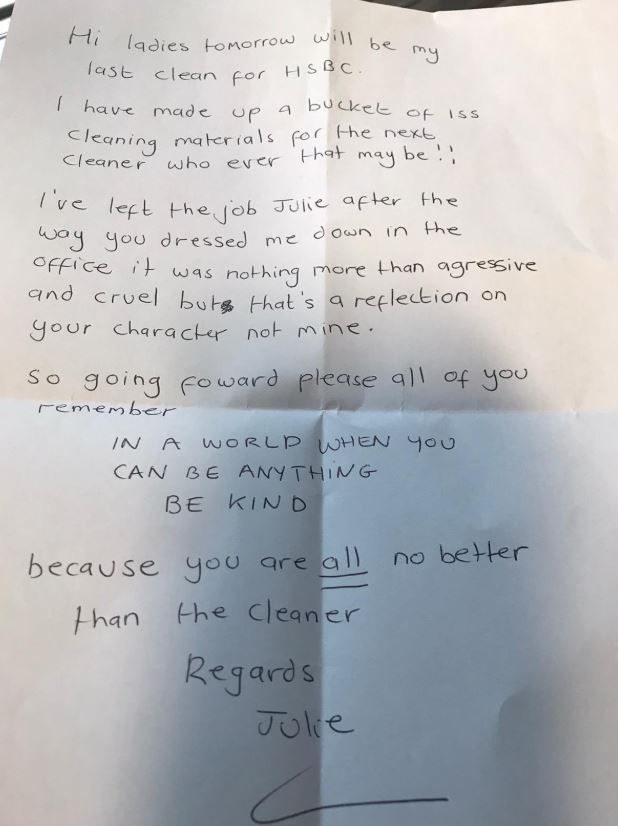 Hi ladies tomorrow will be my
last clean for HSBC.
I have made up a bucket of iss
cleaning materials for the next
cleaner who ever that may be!!
I've left the job Julie after the
way you dressed me down in the
office it was nothing more than agressive
and cruel but that's a reflection on
your character not mine.
So going foward please all of you
remember
IN A WORLD WHEN YOU
CAN BE ANYTHING
BE KIND
because you are all no better
than the cleaner
Regards
Julie